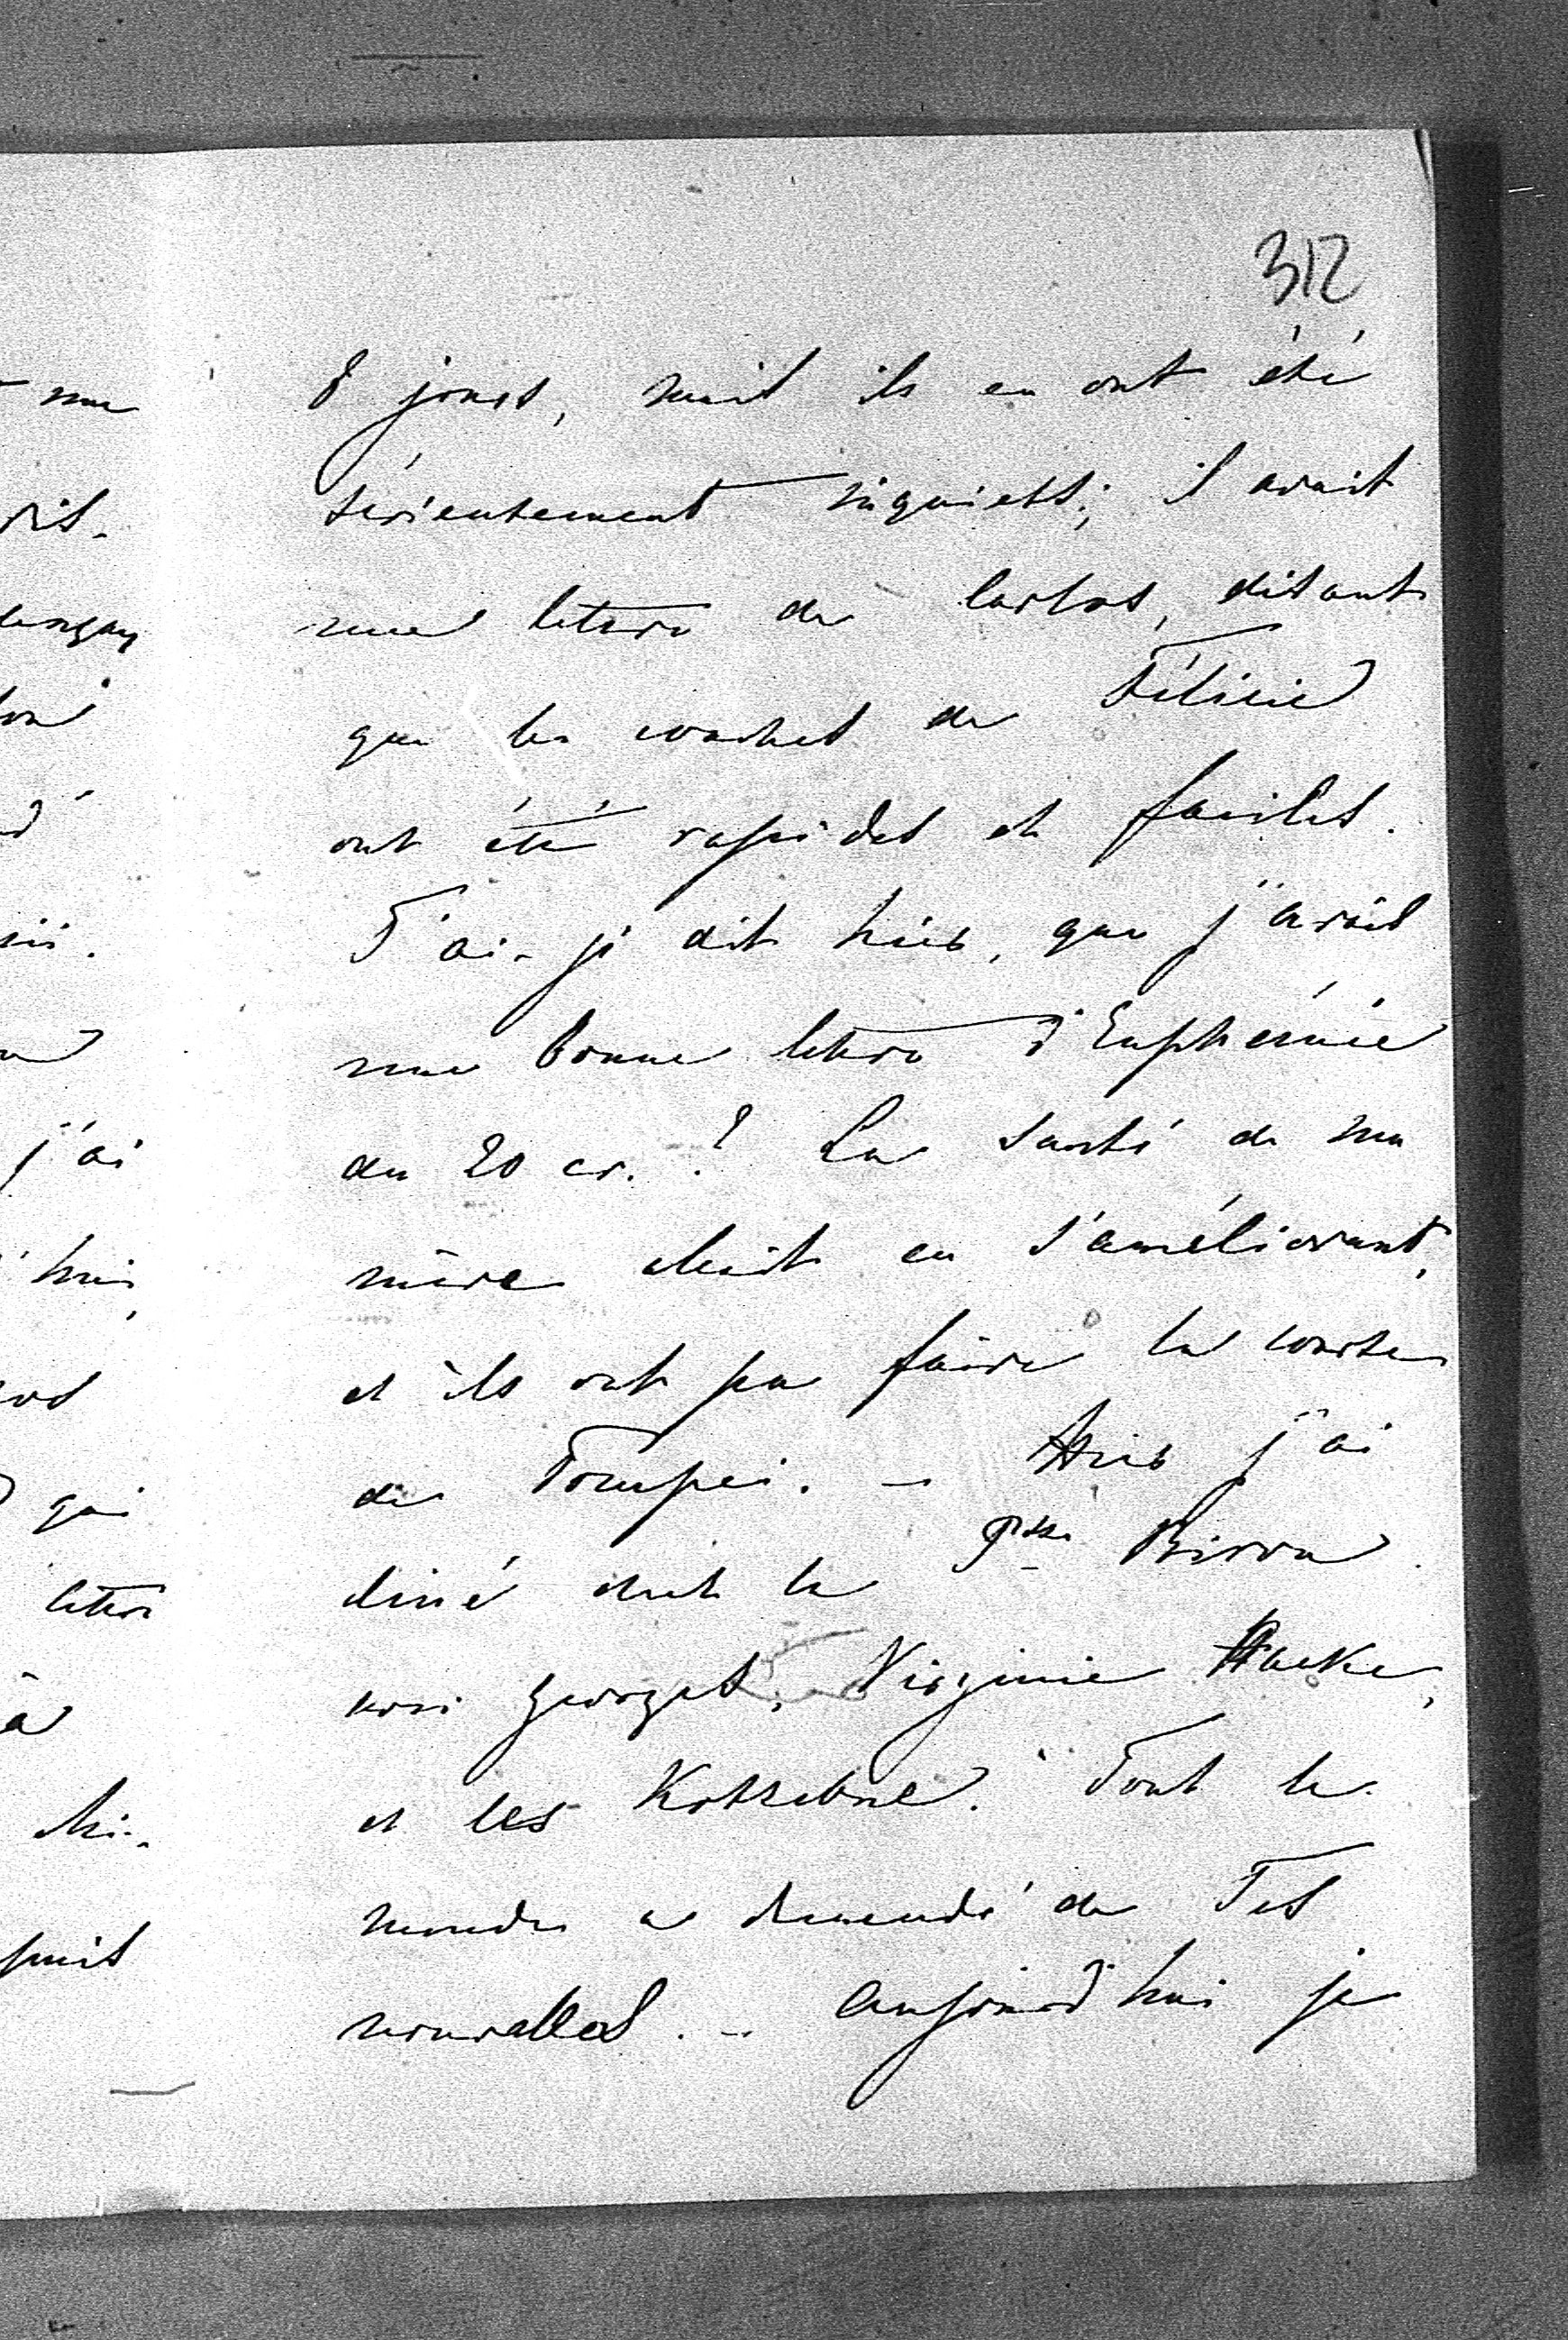 312
8 jours, mais ils en ont été
sérieusement inquiets; il avait
une lettre de Carlos, disant
que les couches de Félicie
ont été rapides et faciles.
T'ai-je dit hier, que j'avais
une bonne lettre d'Euphémie
du 20 cr.? La santé de ma
mère allait en s'améliorant,
et ils ont pu faire la course
de Pompei. - Hier j'ai
diné chez la Psse Biron
avec Georges, Virginie Hacke,
et les Kotzebue. Tout le
monde a demandé de Tes
nouvelles. - Aujourd'hui je
j'ai
qui